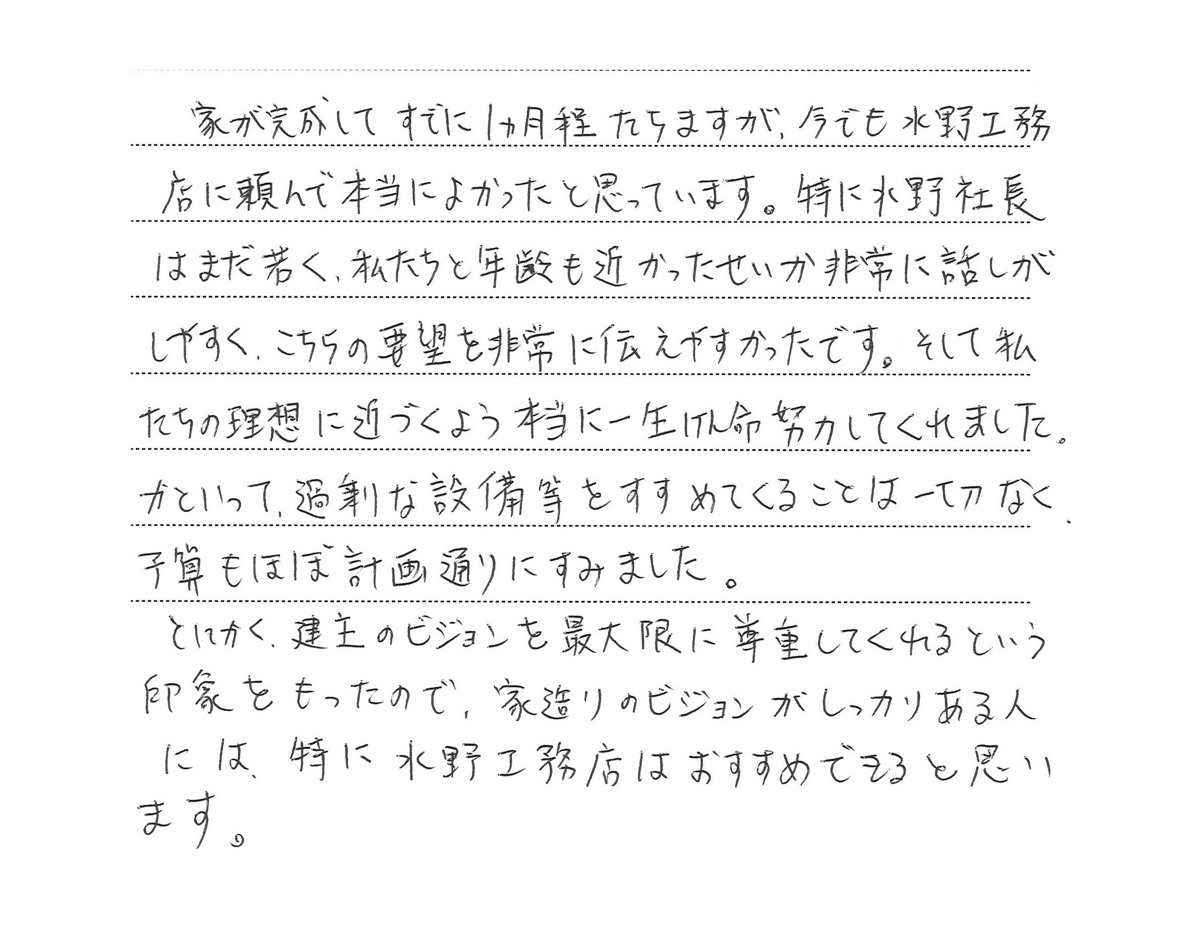 家が完成してすでに1ヵ月程たちますが、今でも水野工務
店に頼んで本当によかったと思っています。特に水野社長
はまだ若く、私たちと年齢も近かったせいか非常に話しが
しやすく、こちらの要望を非常に伝えやすかったです。そして私
たちの理想に近づくよう本当に一生けん命努力してくれました。
かといって、過剰な設備等をすすめてくることは一切なく、
予算もほぼ計画通りにすみました。
とにかく、建主のビジョンを最大限に尊重してくれるという
印象をもったので、家造りのビジョンがしっかりある人
には、特に水野工務店はおすすめできると思い
ます。